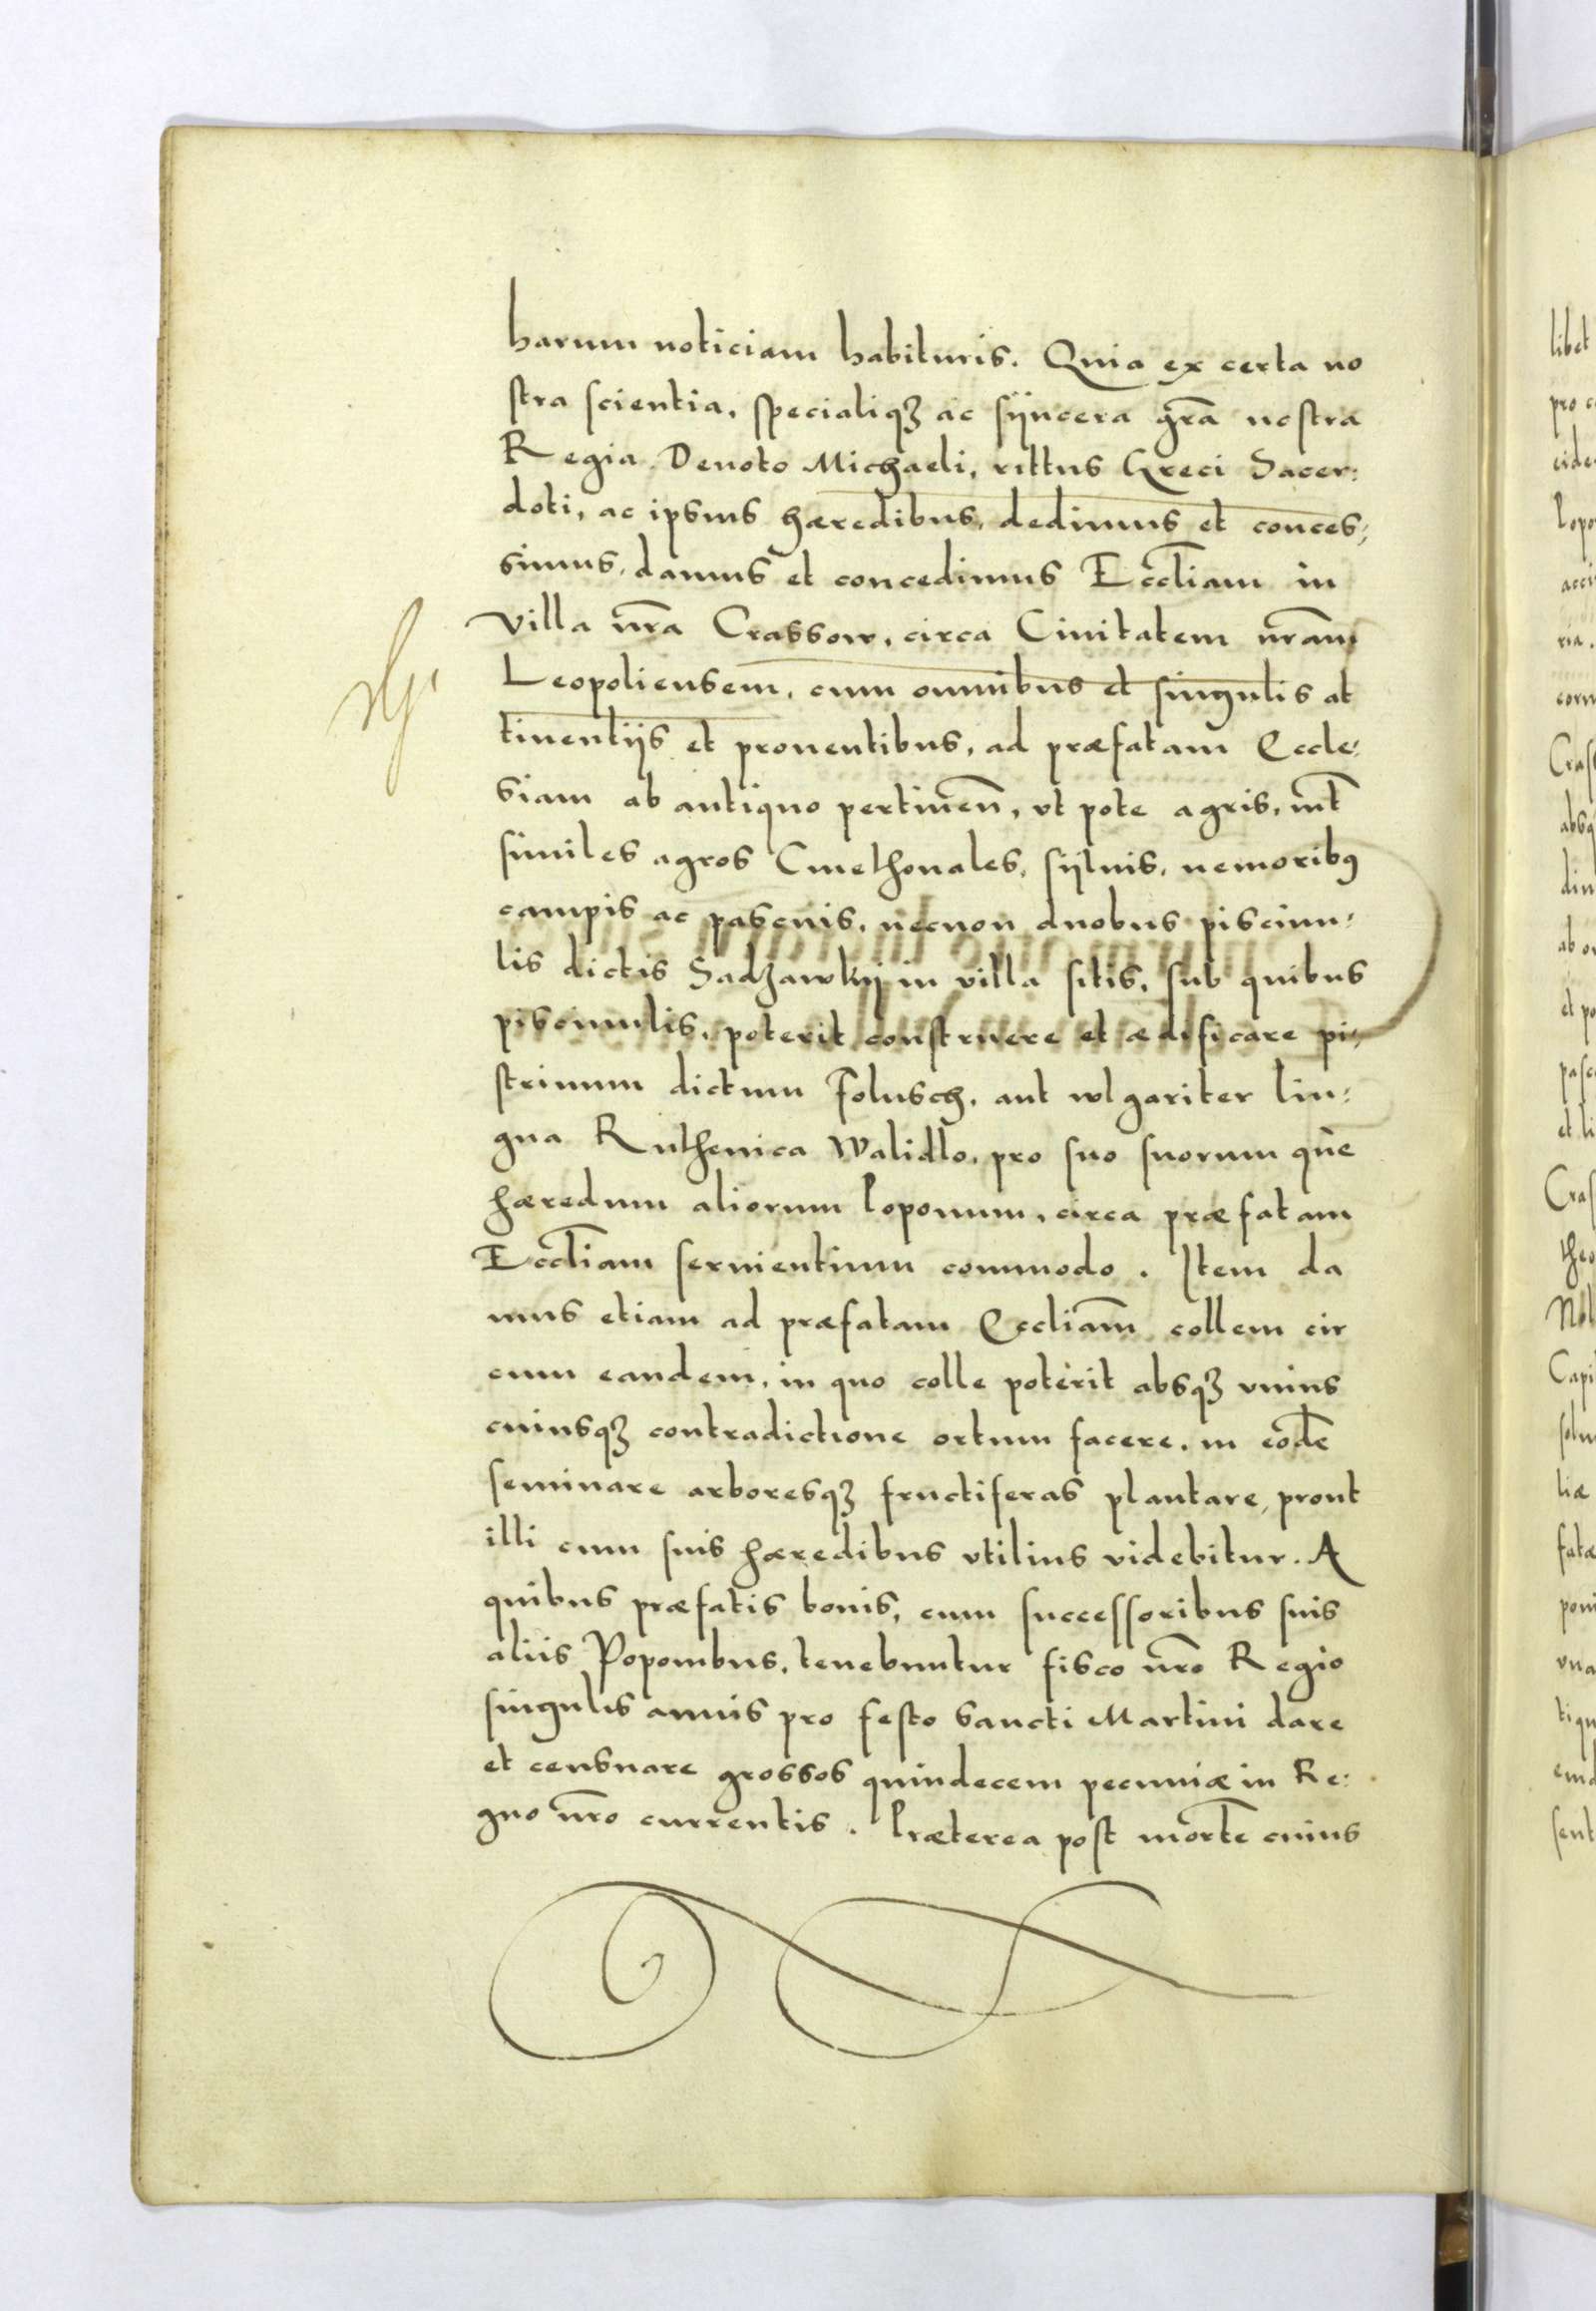 harum noticiam habituris. Quia ex certa no
stra scientia, specialiqꝫ ac sijncera gr̃a nostra
Regia Deuoto Michaeli, rittus Greci Sacer:
doti, ac ipsius hæredibus, dedimus et conces,
simus, damus et concedimus Eccl̃iam in
villa nr̃a Crassow, circa Ciuitatem nr̃am
Leopoliensem, cum omnibus et singulis at
tinentijs et prouentibus, ad præfatam Eccle,
siam ab antiquo pertineñ, vt pote agris, int̃
similes agros Cmethonales, sijluis, nemoribꝰ
campis ac pascuis, necnon duobus piscinu,
lis dictis Sadzawkij in villa sitis, sub quibus
piscinulis, poterit construere et ædificare pi,
strinum dictum Folusch, aut wlgariter lin:
gua Ruthenica Walidlo, pro suo suorum que
hæredum aliorum Poponum, circa præfatam
Eccl̃iam seruientium commodo. Item da
mus etiam ad præfatam Eccliam̃ collem cir
cum eandem, in quo colle poterit absqꝫ vnius
cuiusqꝫ contradictione ortum facere, in eodẽ
seminare arboresqꝫ fructiferas plantare, prout
illi cum suis hæredibus vtilius videbitur. A
quibus præfatis bonis, cum successoribus suis
aliis Poponibus, tenebuntur fisco nr̃o Regio
singulis annis pro festo Sancti Martini dare
et censuare grossos quindecem pecuniæ in Re:
gno nr̃o currentis. Præterea post mortẽ cuius
libet